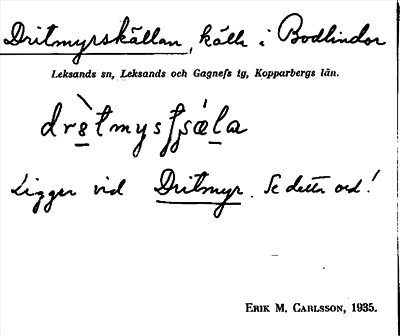 Dritmyrskällan, källa i Bodlindor
Leksands sn, Leksands och Gagnefs tg, Kopparbergs län.
Ligger vid Dritmyr. Se detta ord!
ERIK M. CARLSSON, 1935.